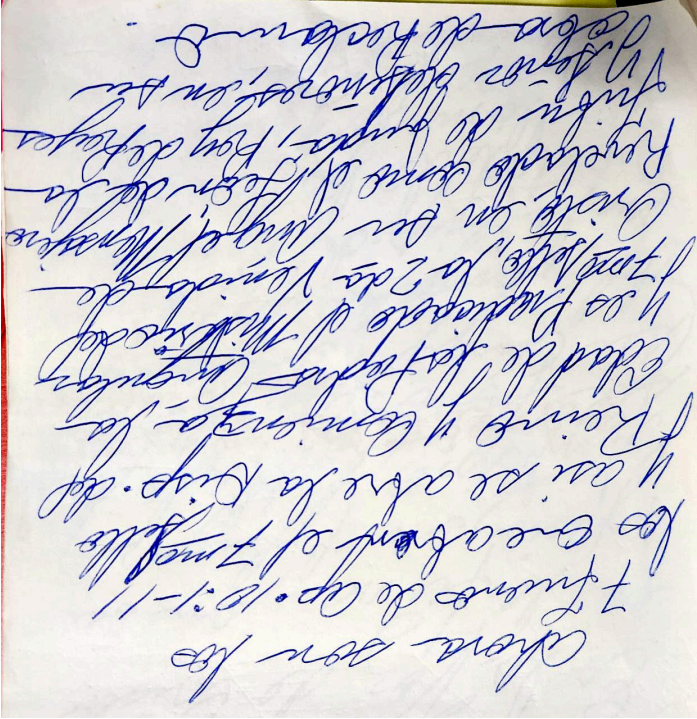 ahora son los
7 truenos de Ap. 10:1-11
los que abren el 7mo Sello
y asi se abre la Disp. del
Reino y comienza la
Edad de la Piedra Angular
y es Predicado el Misterio del
7mo Sello, la 2da Venida de
Cristo en su Angel Mensajero
Revelado como el León de la
tribu de Juda, Rey de Reyes
y Señor de Señores, en su
obra de Reclamo.